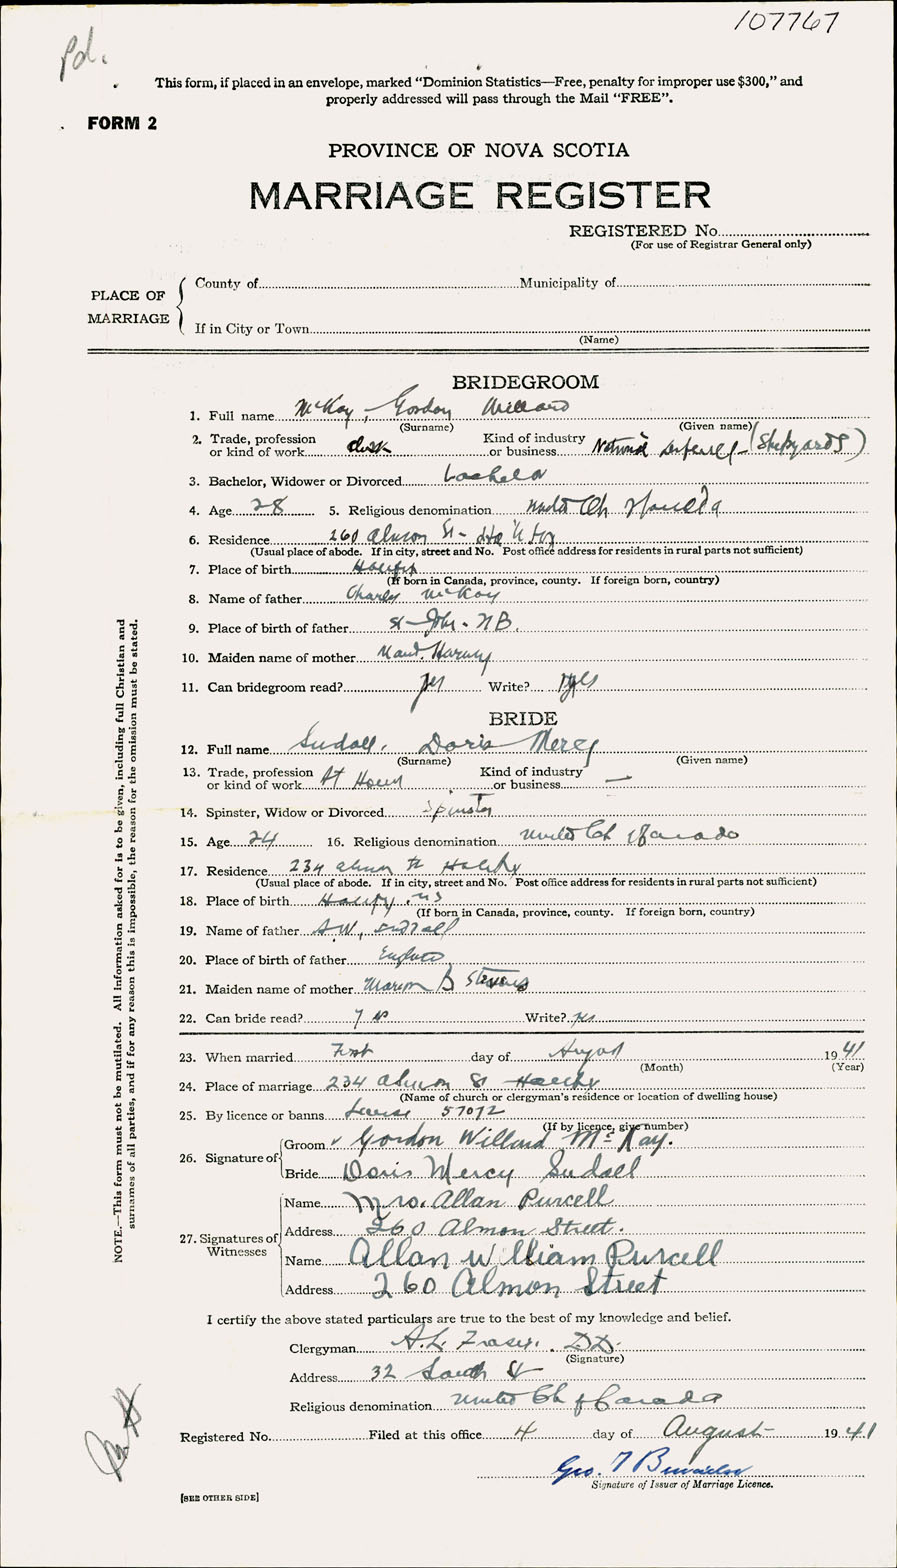 107767
pd.
This form, if placed in an envelope, marked "Dominion Statistics—Free, penalty for improper use $300," and
properly addressed will pass through the Mail "FREE".
FORM 2
PROVINCE OF NOVA SCOTIA
MARRIAGE REGISTER
REGISTERED No.
(For use of Registrar General only)
PLACE OF MARRIAGE
County of Municipality of
If in City or Town
(Name)
BRIDEGROOM
1. Full name McKay, Gordon Willard
(Surname) (Given name)
2. Trade, profession or kind of work clerk Kind of industry or business National Defense (Shipyards)
3. Bachelor, Widower or Divorced bachelor
4. Age 28 5. Religious denomination United Ch of Canada
6. Residence 260 Almon St - Halifax
(Usual place of abode. If in city, street and No. Post office address for residents in rural parts not sufficient)
7. Place of birth Halifax
(If born in Canada, province, county. If foreign born, country)
8. Name of father Charles McKay
9. Place of birth of father St John. N B.
10. Maiden name of mother Maud Harvey
11. Can bridegroom read? yes Write? yes
BRIDE
12. Full name Sudall, Doris Mercy
(Surname) (Given name)
13. Trade, profession or kind of work At Home Kind of industry or business —
14. Spinster, Widow or Divorced Spinster
15. Age 24 16. Religious denomination United Ch of Canada
17. Residence 234 Almon St Halifax
(Usual place of abode. If in city, street and No. Post office address for residents in rural parts not sufficient)
18. Place of birth Halifax. NS
(If born in Canada, province, county. If foreign born, country)
19. Name of father Sudall
20. Place of birth of father England
21. Maiden name of mother Marion B Stevens
22. Can bride read? yes Write? yes
23. When married First day of August 1941
(Month) (Year)
24. Place of marriage 234 Almon St Halifax
(Name of church or clergyman's residence or location of dwelling house)
25. By licence or banns License 57072
(If by licence, give number)
26. Signature of
Groom Gordon Willard McKay.
Bride Doris Mercy Sudall
27. Signatures of Witnesses
Name Mrs. Allan Purcell
Address 260 Almon Street.
Name Allan William Purcell
Address 260 Almon Street
I certify the above stated particulars are true to the best of my knowledge and belief.
Clergyman A. L. Fraser. DD.
(Signature)
Address 32 South St
Religious denomination United Ch of Canada
Registered No. Filed at this office 4 day of August 1941
Geo. T
Signature of Issuer of Marriage Licence.
[SEE OTHER SIDE]
NOTE.—This form must not be mutilated. All Information asked for is to be given, including full Christian and
surnames of all parties, and if for any reason this is impossible, the reason for the omission must be stated.